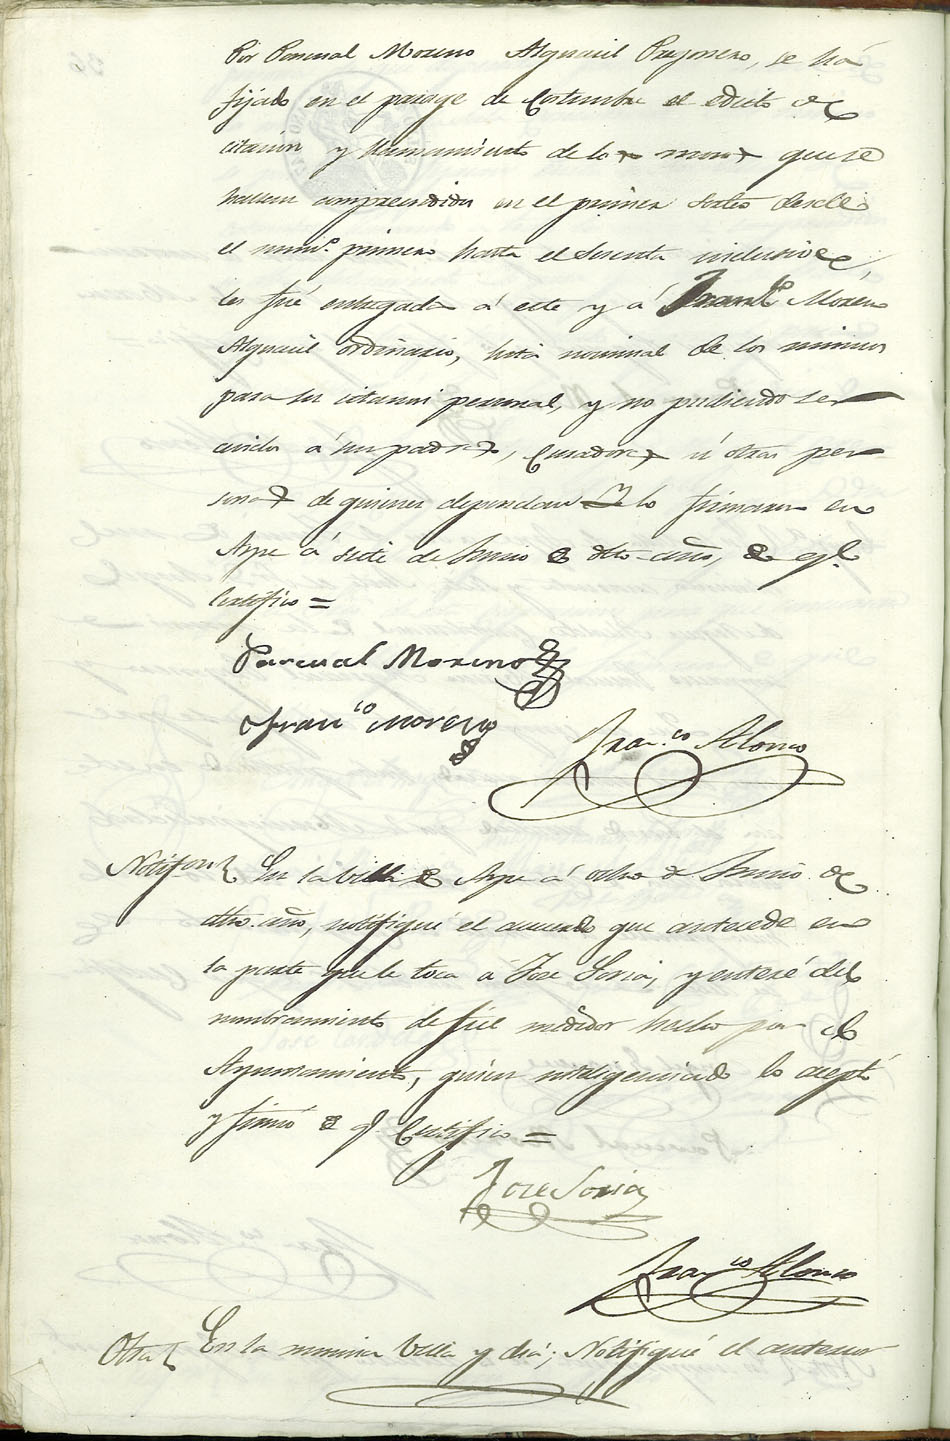 Por Pascual Moreno Alguacil Pregonero, se há
fijado en el parage de Costumbre el edicto de
citacion y llamamiento de los mozos que se
hallan comprendidos en el primer sorteo desde
el num.o primero hasta el Sesenta inclusive,
les fué entregada á este y á Fran.co Moreno
Alguacil ordinario, lista nominal de los mismos
para su citacion personal, y no pudiendo ser
avidos á sus padres, Curadores ú otras per
sonas de quienes dependan y lo firmaron en
Aspe á siete de Junio de dho año, de q.e
Certifico =
Pascual Moreno
Fran.co Moreno
Fran.co Alonso
Notif.on En la Villa de Aspe á ocho de Junio de
dho. año, notifiqué el acuerdo que antecede en
la parte que le toca á Jose Soria, y enteré del
nombramiento de fiel medidor hecho por el
Ayuntamiento, quien inteligenciado lo aceptó
y firmó de q.e Certifico =
Jose Soria
Fran.co Alonso
Otra En la misma Villa y dia; Notifiqué el anterior